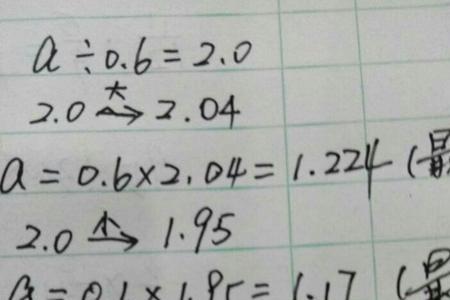 a ÷ 0.6 = 2.0
2.0 大→ 2.04
a = 0.6 × 2.04 = 1.224 (最
2.0 小→ 1.95
1.95 = 1.17 (最